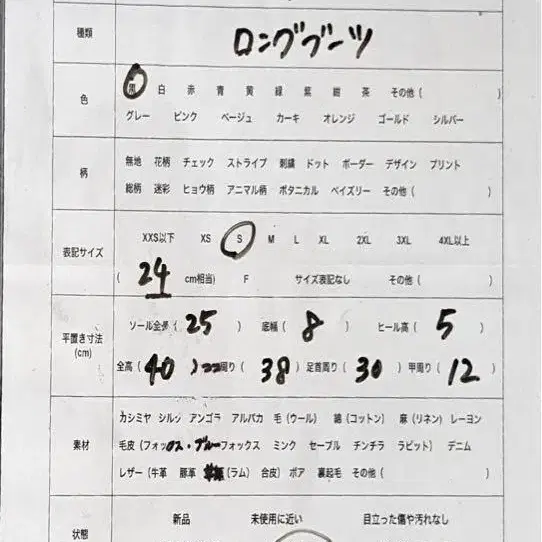 種類 ロングブーツ
色 黒 白 赤 青 黄 緑 紫 紺 茶 その他 ( )
グレー ピンク ベージュ カーキ オレンジ ゴールド シルバー
柄 無地 花柄 チェック ストライプ 刺繍 ドット ボーダー デザイン プリント
総柄 迷彩 ヒョウ柄 アニマル柄 ボタニカル ペイズリー その他 ( )
表記サイズ XXS以下 XS S M L XL 2XL 3XL 4XL以上
( 24 cm相当) F サイズ表記なし その他 ( )
平置き寸法 (cm) ソール全長 ( 25 ) 底幅 ( 8 ) ヒール高 ( 5 )
全高 ( 40 ) 周り ( 38 ) 足首周り ( 30 ) 甲周り ( 12 )
素材 カシミヤ シルク アンゴラ アルパカ 毛 (ウール) 綿 (コットン) 麻 (リネン) レーヨン
毛皮 (フォックス・ブルーフォックス ミンク セーブル チンチラ ラビット) デニム
レザー (牛革 豚革 (ラム) 合皮) ボア 裏起毛 その他 ( )
状態 新品 未使用に近い 目立った傷や汚れなし